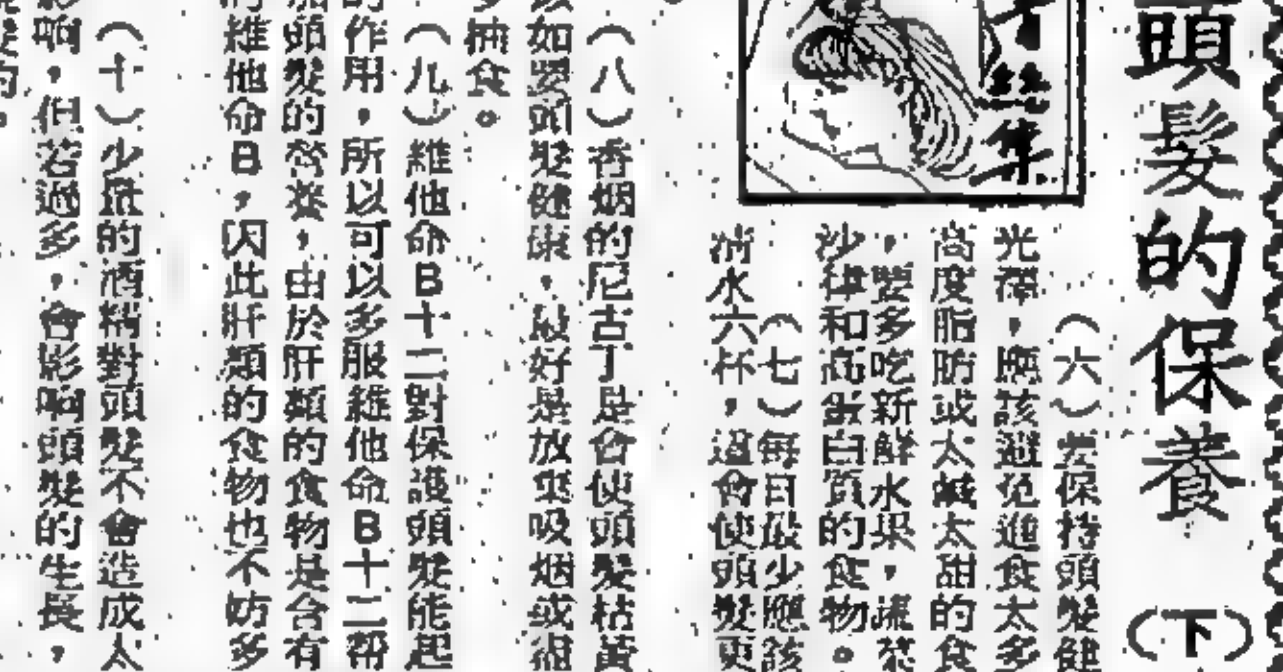 頭髮的保養
(下)
絲集
(六)要保持頭髮健
光澤,應該避免進食太多
高度脂肪或太鹹太甜的食
,要多吃新鮮水果,蔬菜
沙律和高蛋白質的食物。
(七)每日最少應該
清水六杯,這會使頭髮更
(八)香烟的尼古丁是會使頭髮枯黃
如要頭髮健康,最好是放棄吸烟或
抽食。
(九)維他命B十二對保護頭髮能起
的作用,所以可以多服維他命B十二帮
頭髮的營養,由於肝類的食物是含有
維他命B,因此肝類的食物也不妨多
(十)少量的酒精對頭髮不會造成太
影响,但若過多,會影响頭髮的生長,
的。